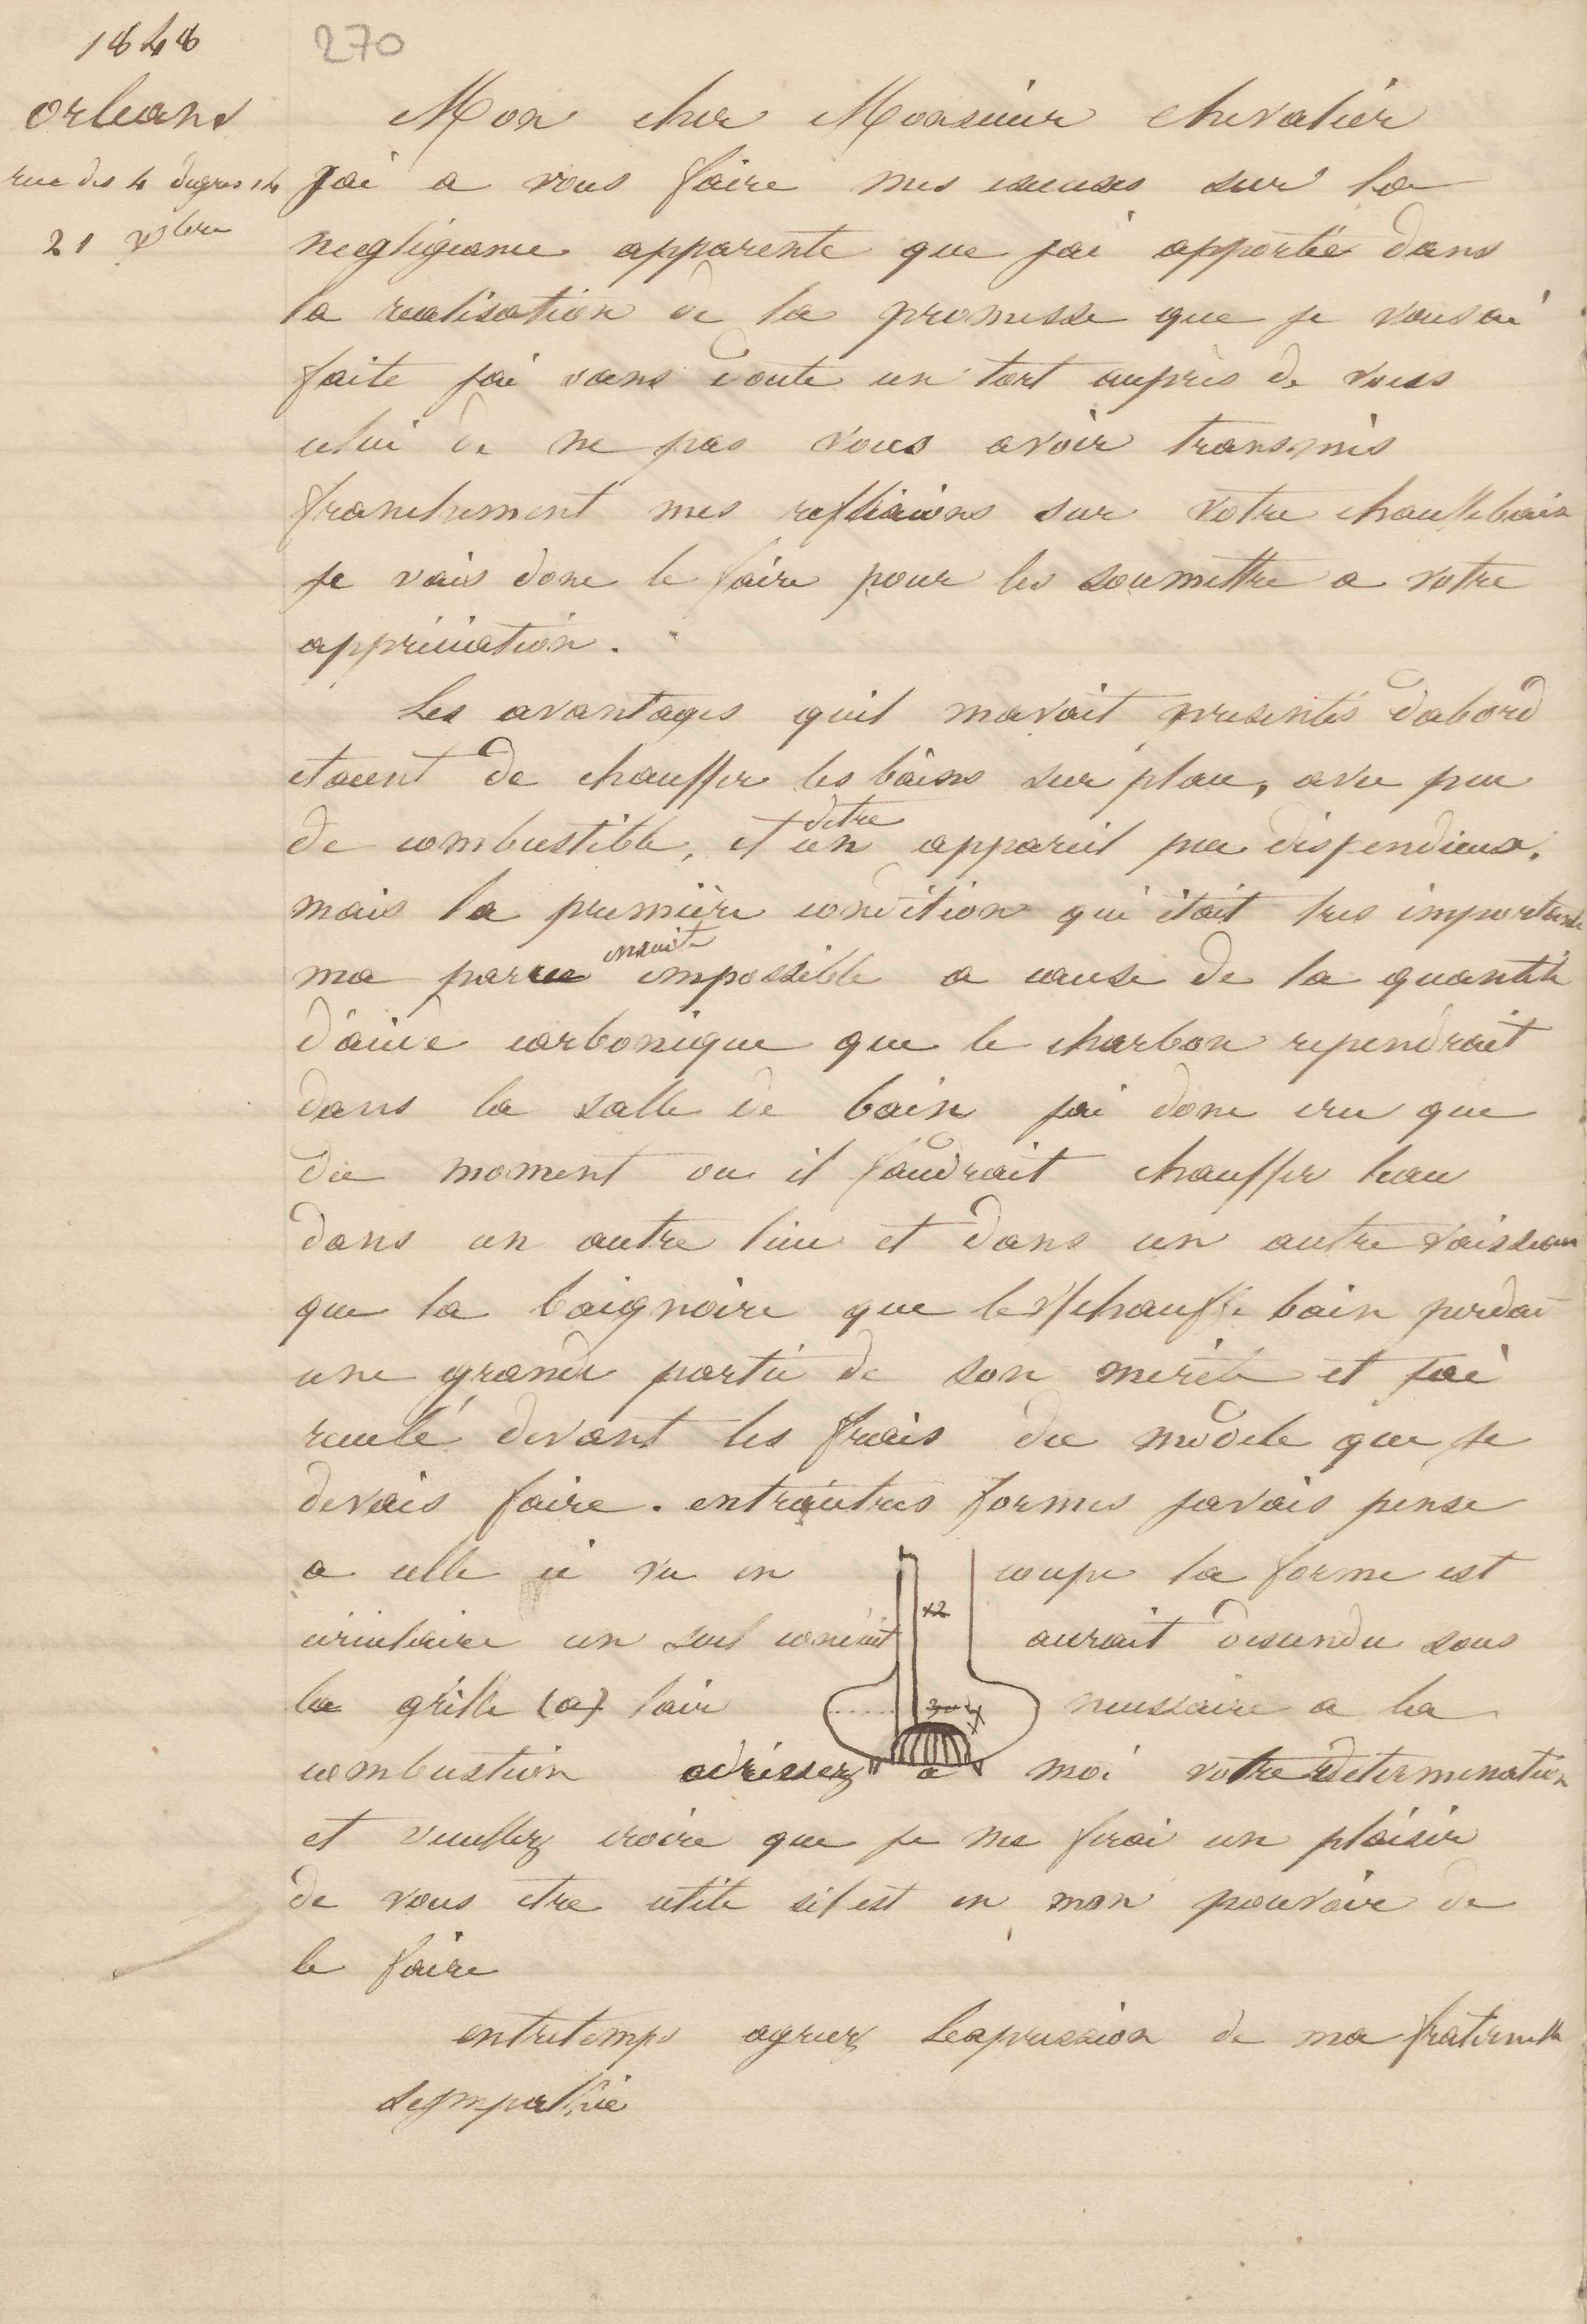 1848
270
orleans
rue des 4 degres 14
21 xbre
Mon cher Monsieur chevalier
jai a vous faire mes excuses sur la
negligeance apparente que jai apportée dans
la realisation de la promesse que je vous ai
faite jai sans doute un tort auprès de vous
celui de ne pas vous avoir transmis
franchement mes reflexions sur votre chauffebain
je vais donc le faire pour les soumettre a votre
appréciation.
Les avantages quil mavait presentés dabord
etaient de chauffer les bains sur place, avec peu
detre
de combustible, et un appareil peu dispendieux.
mais la première condition qui était tres importante
ensuite
ma parue impossible a cause de la quantité
dacide carbonique que le charbon rependrait
dans la salle de bain jai donc cru que
du moment ou il faudrait chauffer leau
dans un autre lieu et dans un autre vaisseau
que la baignoire que le chauffe bain perdait
une grande partie de son merite et jai
reculé devant les frais du modele que je
devais faire. entrautres formes javais pensé
a celle ci vu en coupe la forme est
circulaire un seul conduit aurait descendu sous
la grille (a) lair necessaire a la
combustion adressez a moi votre determination
et veuillez croire que je me ferai un plaisir
de vous etre utile sil est en mon pouvoir de
le faire
entretemps agreez lexpression de ma fraternelle
sympathie